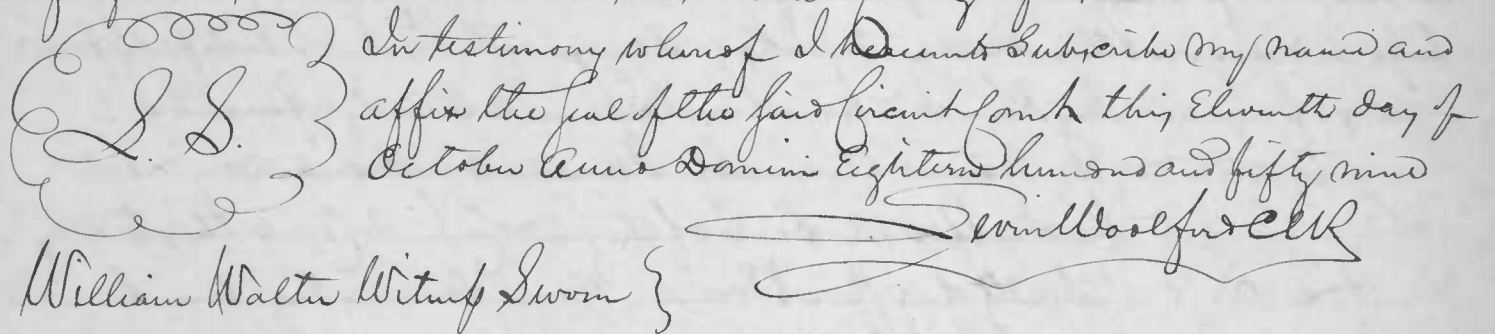 In testimony whereof I hereunto Subscribe my name and
L. S.
affix the seal of the said Circuit Court this Eleventh day of
October Anno Domini Eighteen hundred and fifty nine
Levin Woolford Clk
William Walter Witness Sworn }